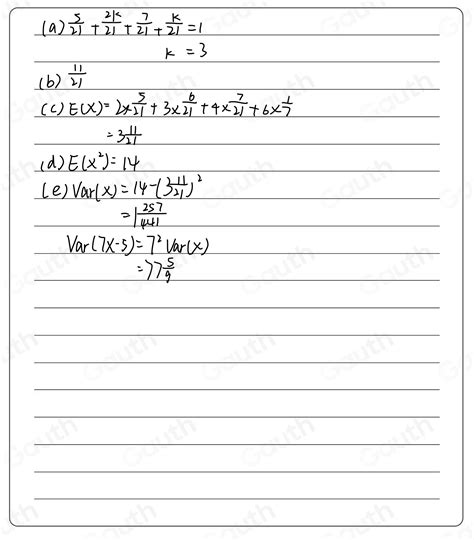 (a) 5/21 + 2k/21 + 7/21 + k/21 = 1
k = 3
(b) 11/21
(c) E(X) = 2×5/21 + 3×6/21 + 4×7/21 + 6×1/7
= 3 11/21
(d) E(x²) = 14
(e) Var(x) = 14-(3 11/21)²
= 1 257/441
Var(7X-5) = 7² Var(x)
= 77 5/9
Gauth